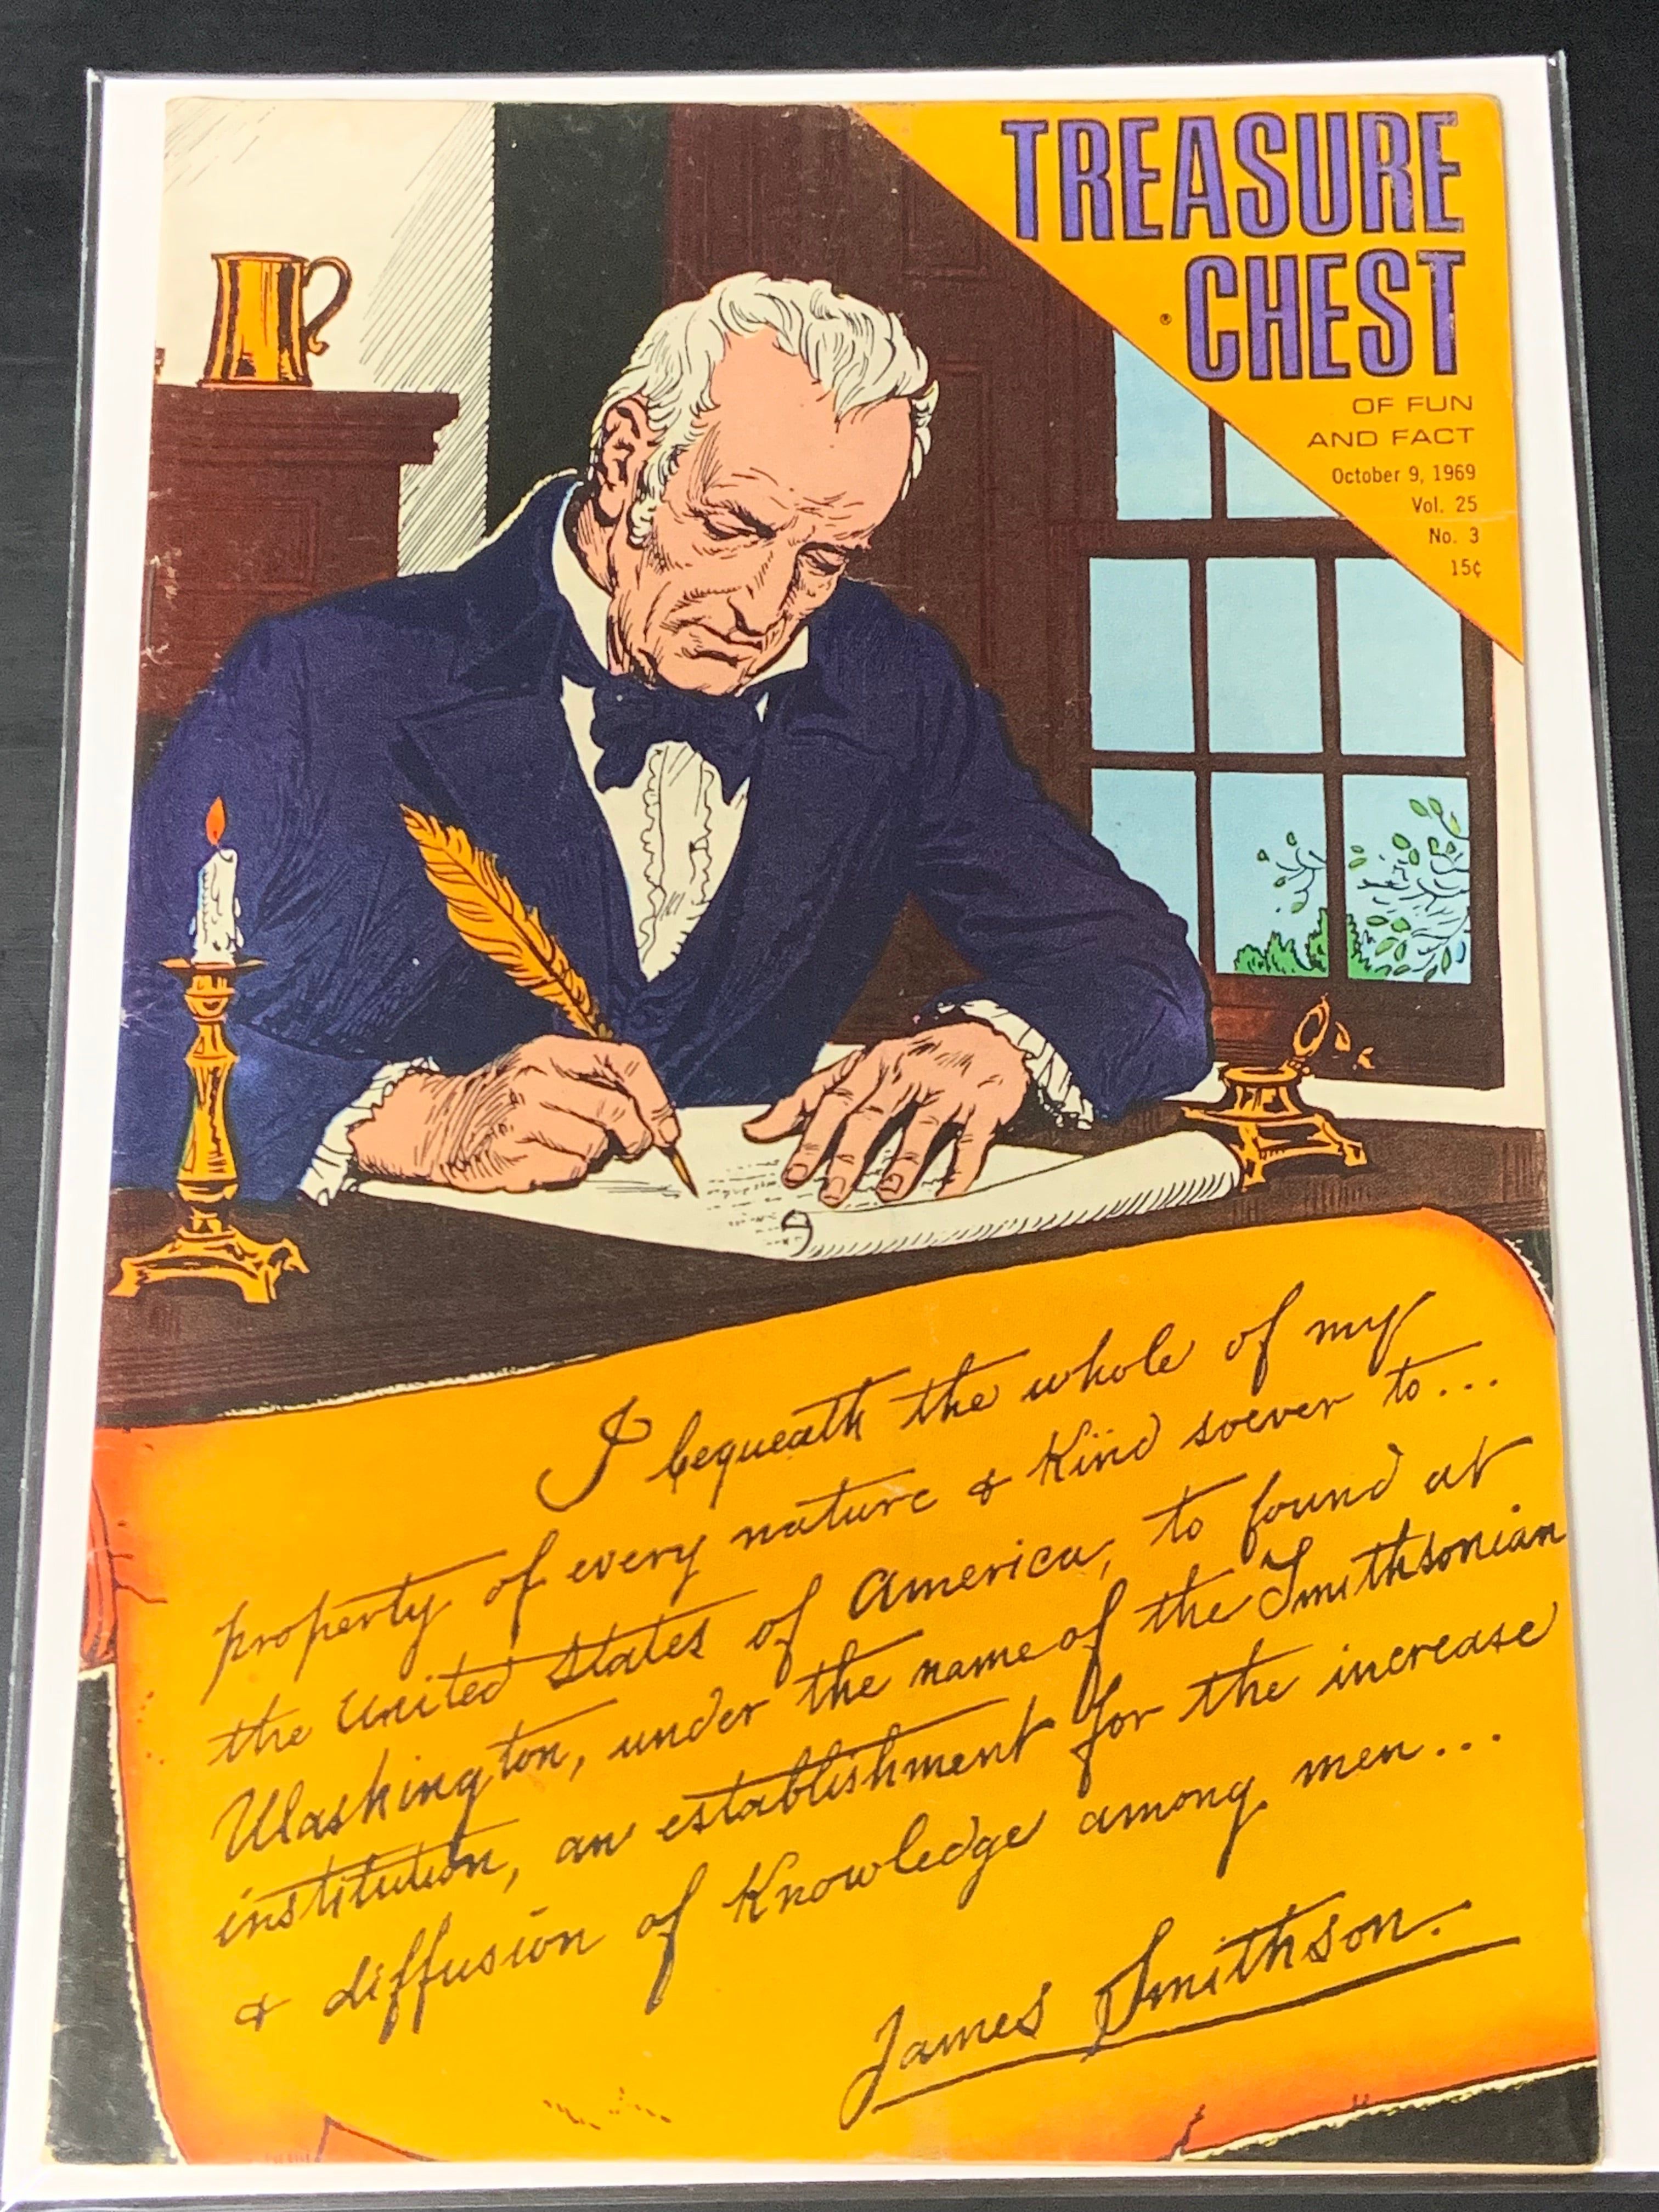 TREASURE
CHEST
®
OF FUN
AND FACT
October 9, 1969
Vol. 25
No. 3
15¢
I bequeath the whole of my
property of every nature & Kind soever to...
the United States of America, to found at
Washington, under the name of the Smithsonian
institution, an establishment for the increase
& diffusion of Knowledge among men...
James Smithson.